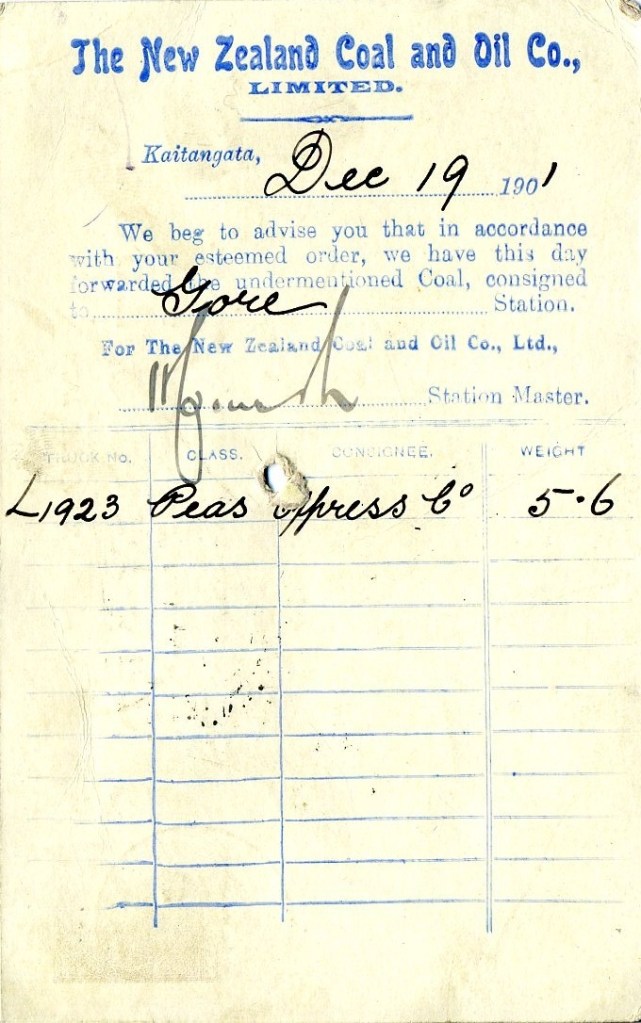 The New Zealand Coal and Oil Co.,
LIMITED.
Kaitangata, Dec 19 1901
We beg to advise you that in accordance
with your esteemed order, we have this day
forwarded the undermentioned Coal, consigned
to Gore Station.
For The New Zealand Coal and Oil Co., Ltd.,
Station Master.
TRUCK No. CLASS. CONSIGNEE. WEIGHT
L1923 Peas Express Co 5.6